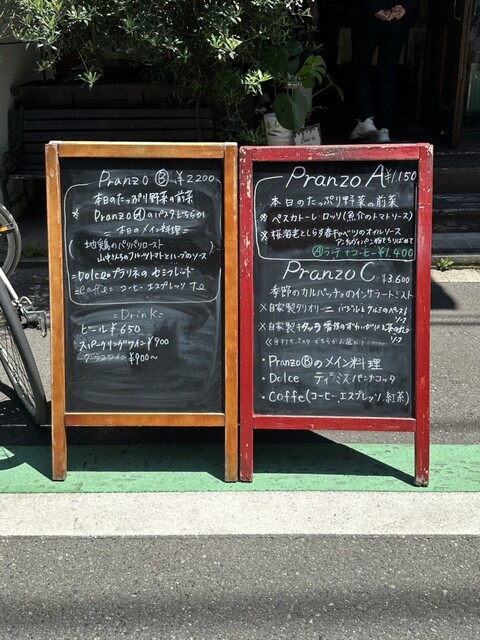 Pranzo Ⓑ ¥2200
本日のたっぷり野菜の前菜
※ Pranzo Ⓐのパスタどちらか
= 本日のメイン料理 =
地鶏のパリパリロースト
のフルーツトマトとハーブのソース
=Dolce= プラリネのセミフレッド
=Caffe= コーヒー エスプレッソ
=Drink=
ビール ¥650
スパークリングワイン ¥900
グラスワイン ¥900〜
Pranzo A ¥1.150
本日のたっぷり野菜の前菜
※ ペスカトーレ・ロッソ(魚介のトマトソース)
※ 桜海老としらす春キャベツのオイルソース
Ⓐランチコーヒー ¥1.400
Pranzo C ¥3.600
季節のカルパッチョのインサラートミスト
※ 自家製タリオリーニ
ソース
※ 自家製
ソース
・Pranzo Ⓑのメイン料理
・Dolce ティラミス・パンナコッタ
・Coffe (コーヒー、エスプレッソ、紅茶)